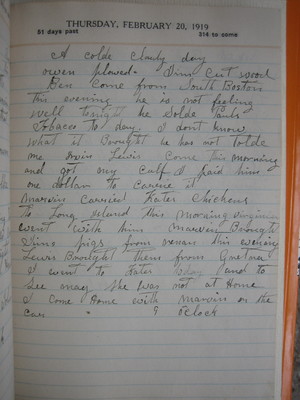 THURSDAY, FEBRUARY 20, 1919
51 days past 314 to come
A colde clauly day
owen plowed. Jim cut wood
Ben come from South Boston
this evening he is not feeling
well tonight he Solde Pauls
Tobacco to day. I dont know
what it Brought he has not tolde
me Irvin Lewis Come this morning
and got my calf I paid him
one dollar to carrie it
Marvin carried Kates Chickens
to Long Islund This morning Virginia
went with him Marvin Brought
Jims pigs from venan this evening
Lewis Bought them from
I went to Kates to day and to
See she was not at Home
I come Home with Marvin on the
Car " 9 oclock